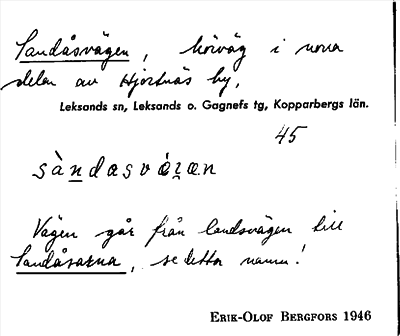 Sandåsvägen, körväg i norra
delen av Hjortnäs by.
Leksands sn, Leksands o. Gagnefs tg, Kopparbergs län.
45
sàndasvǿgan
Vägen går från landsvägen till
Sandåsarna, se detta namn!
ERIK-OLOF BERGFORS 1946